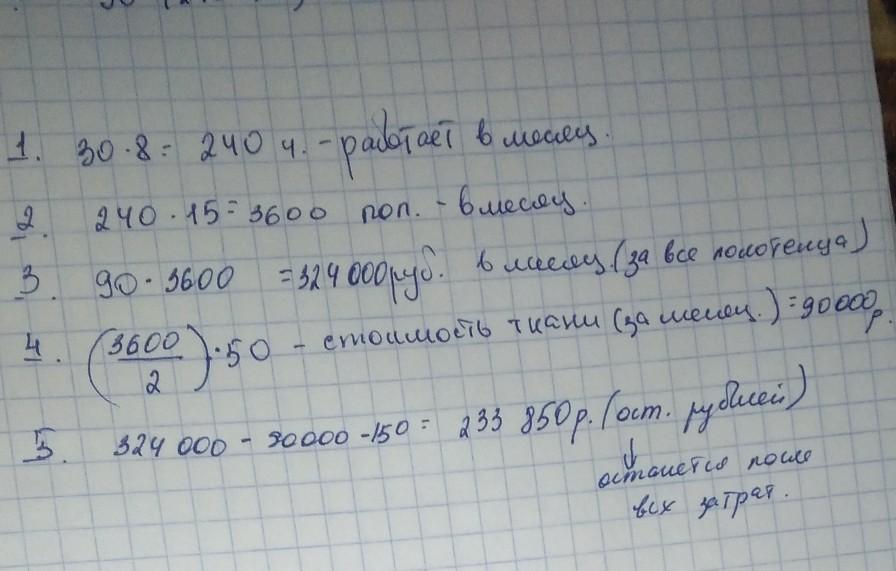 1. 30·8= 240 ч. - работает в месяц.
2. 240·15=3600 пол. - в месяц.
3. 90·3600 =324000руб. в месяц (за все полотенца)
4. (3600/2)·50 - стоимость ткани (за месец.) =90000р.
5. 324 000 - 90000 -150= 233 850р. (ост. рублей)
↓
останется после
всх затрат.